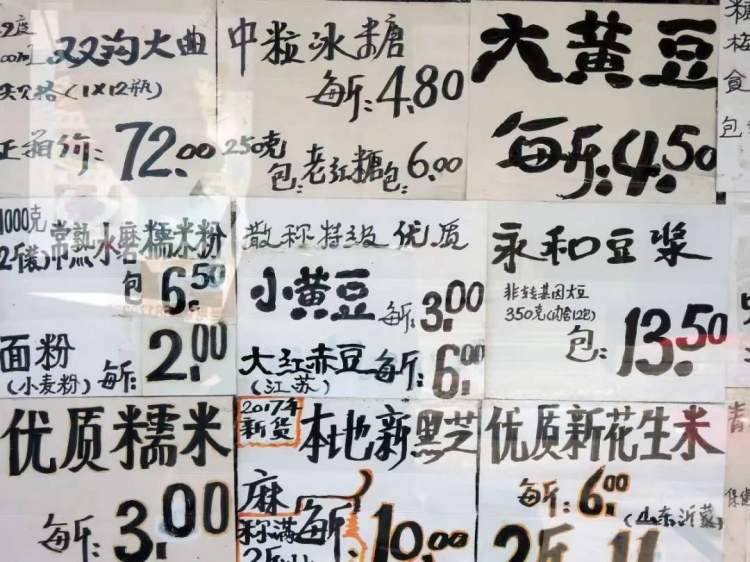 双沟大曲
(1X12瓶)
价:72.00
中粒冰糖
每斤:4.80
250克
包:老红糖包:6.00
大黄豆
每斤:4.50
糖
食
包
1000克
2斤装)常熟水磨糯米粉
包6.50
面粉
(小麦粉)每斤:2.00
散称特级优质
小黄豆每斤:3.00
大红赤豆每斤:6.00
(江苏)
永和豆浆
非转基因大豆
350克(内含12包)
包:13.50
优质糯米
每斤:3.00
2017年
新货
本地新黑芝
麻
每斤:10.00
称满
2斤
优质新花生米
每斤:6.00
(山东沂蒙)
2斤
青
保健